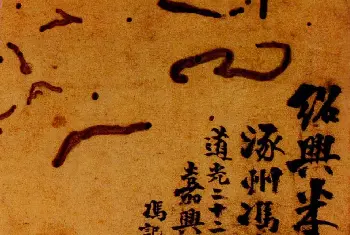 紹興米
涿州馮
道光二十二
嘉興
馮記